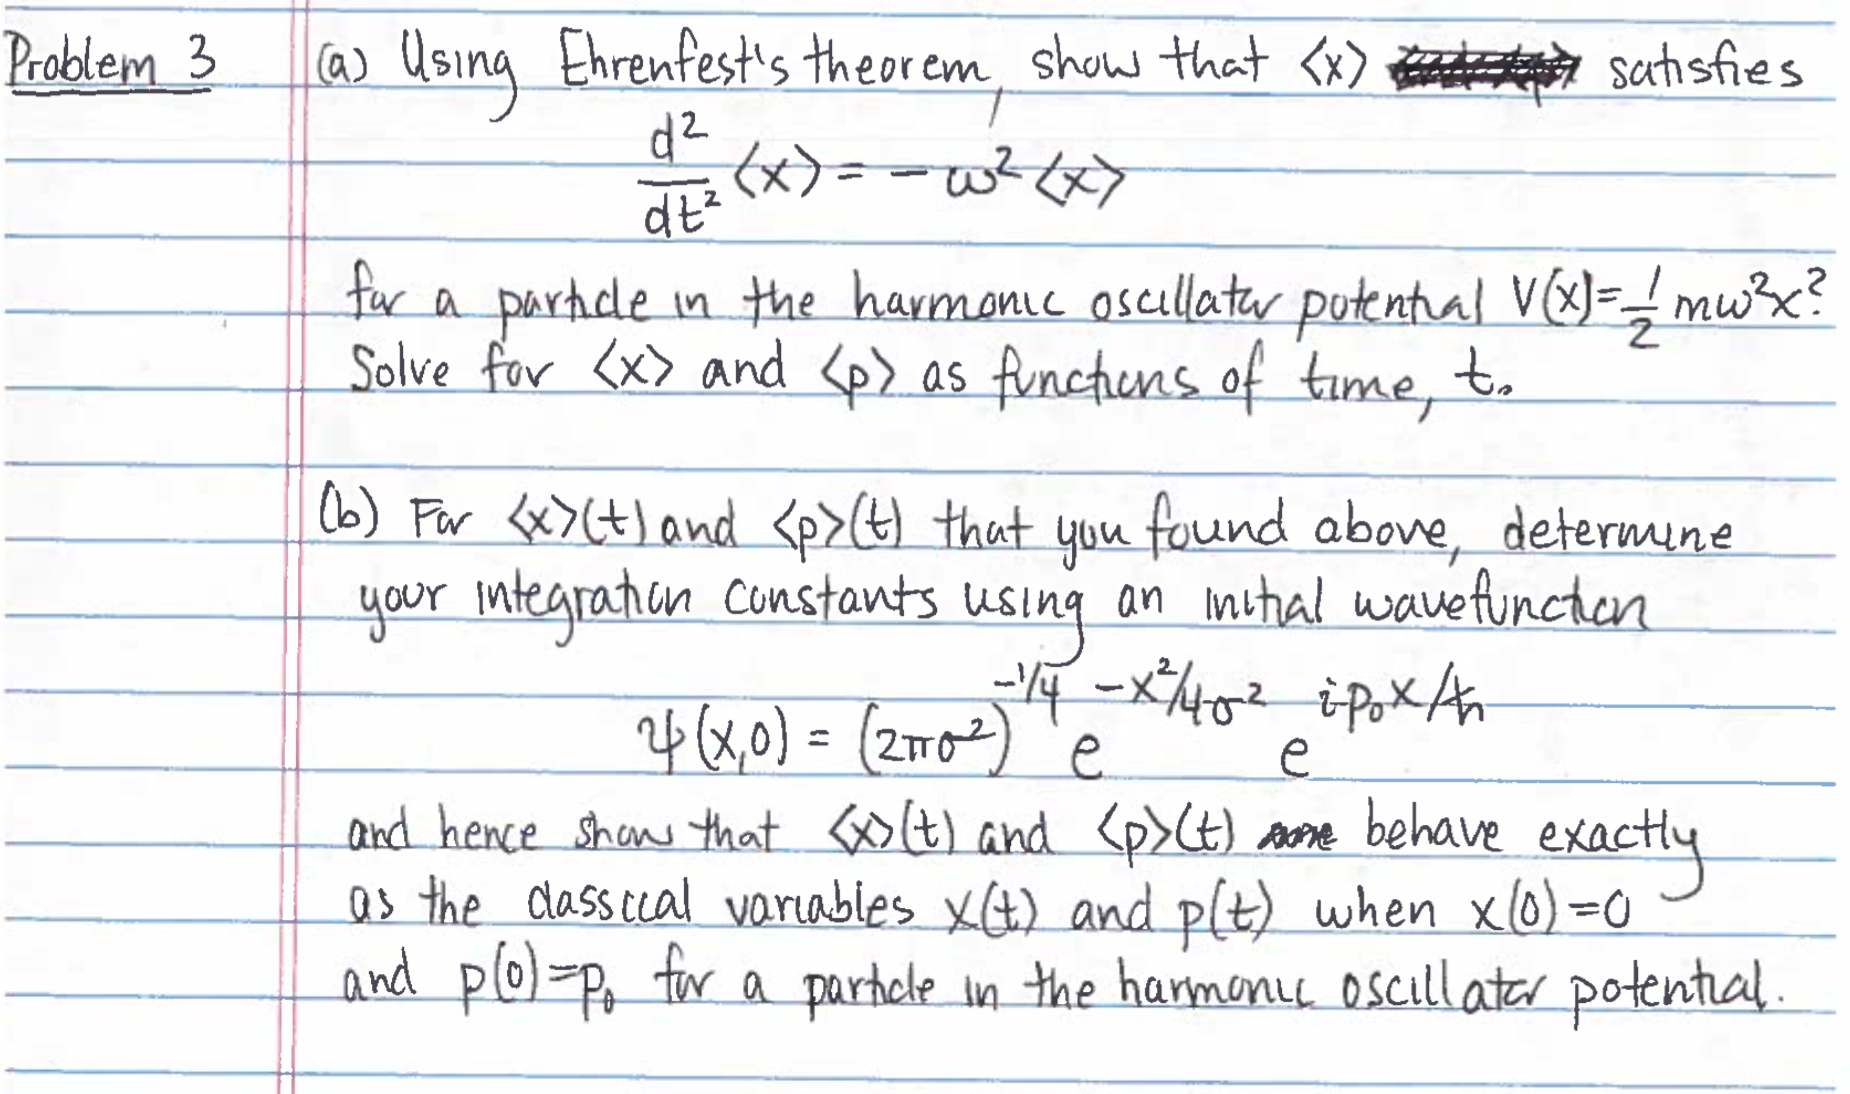 Problem 3 (a) Using Ehrenfest's theorem, show that <x> satisfies
d²/dt² <x> = - ω² <x>
for a particle in the harmonic oscillator potential V(x)=1/2 mω²x².
Solve for <x> and <p> as functions of time, t.
(b) For <x>(t) and <p>(t) that you found above, determine
your integration constants using an initial wavefunction
ψ(x,0) = (2πσ²)^(-1/4) e^(-x²/4σ²) e^(ip₀x/ħ)
and hence show that <x>(t) and <p>(t) behave exactly
as the classical variables x(t) and p(t) when x(0)=0
and p(0)=p₀ for a particle in the harmonic oscillator potential.